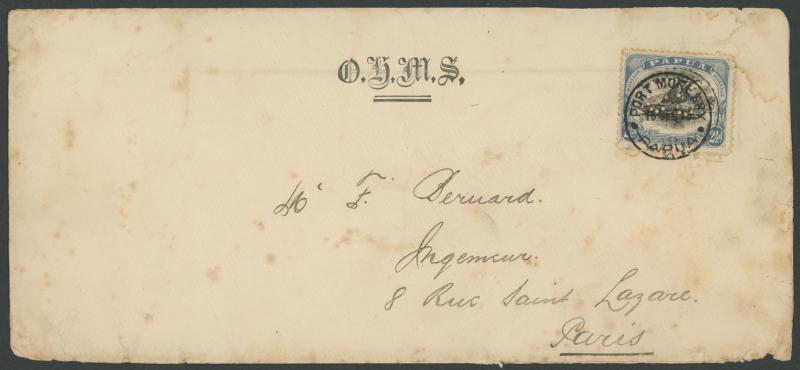 O.H.M.S.
PAPUA
PORT MORESBY
PAPUA
2½d
Mr F. Bernard.
Ingenieur.
8 Rue Saint Lazare.
Paris